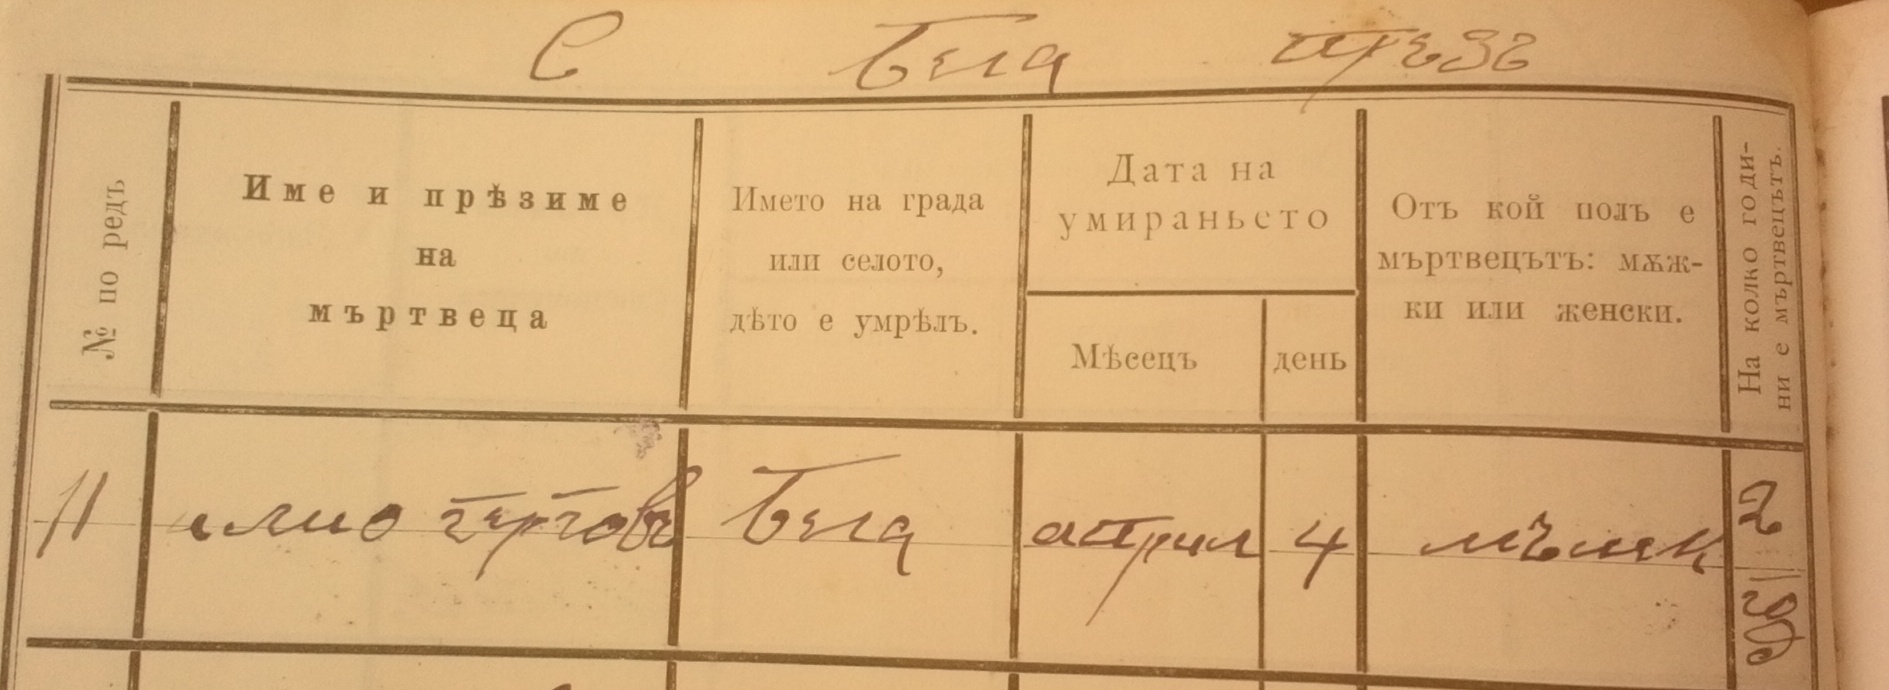 С Бела презъ
№ по редъ
Име и прѣзиме
на
мъртвеца
Името на града
или селото,
дѣто е умрѣлъ.
Дата на
умираньето
Мѣсецъ
день
Отъ кой полъ е
мъртвецътъ: мѫж-
ки или женски.
На колко годи-
ни е мъртвецътъ.
11 герговъ Бела априлъ 4 2